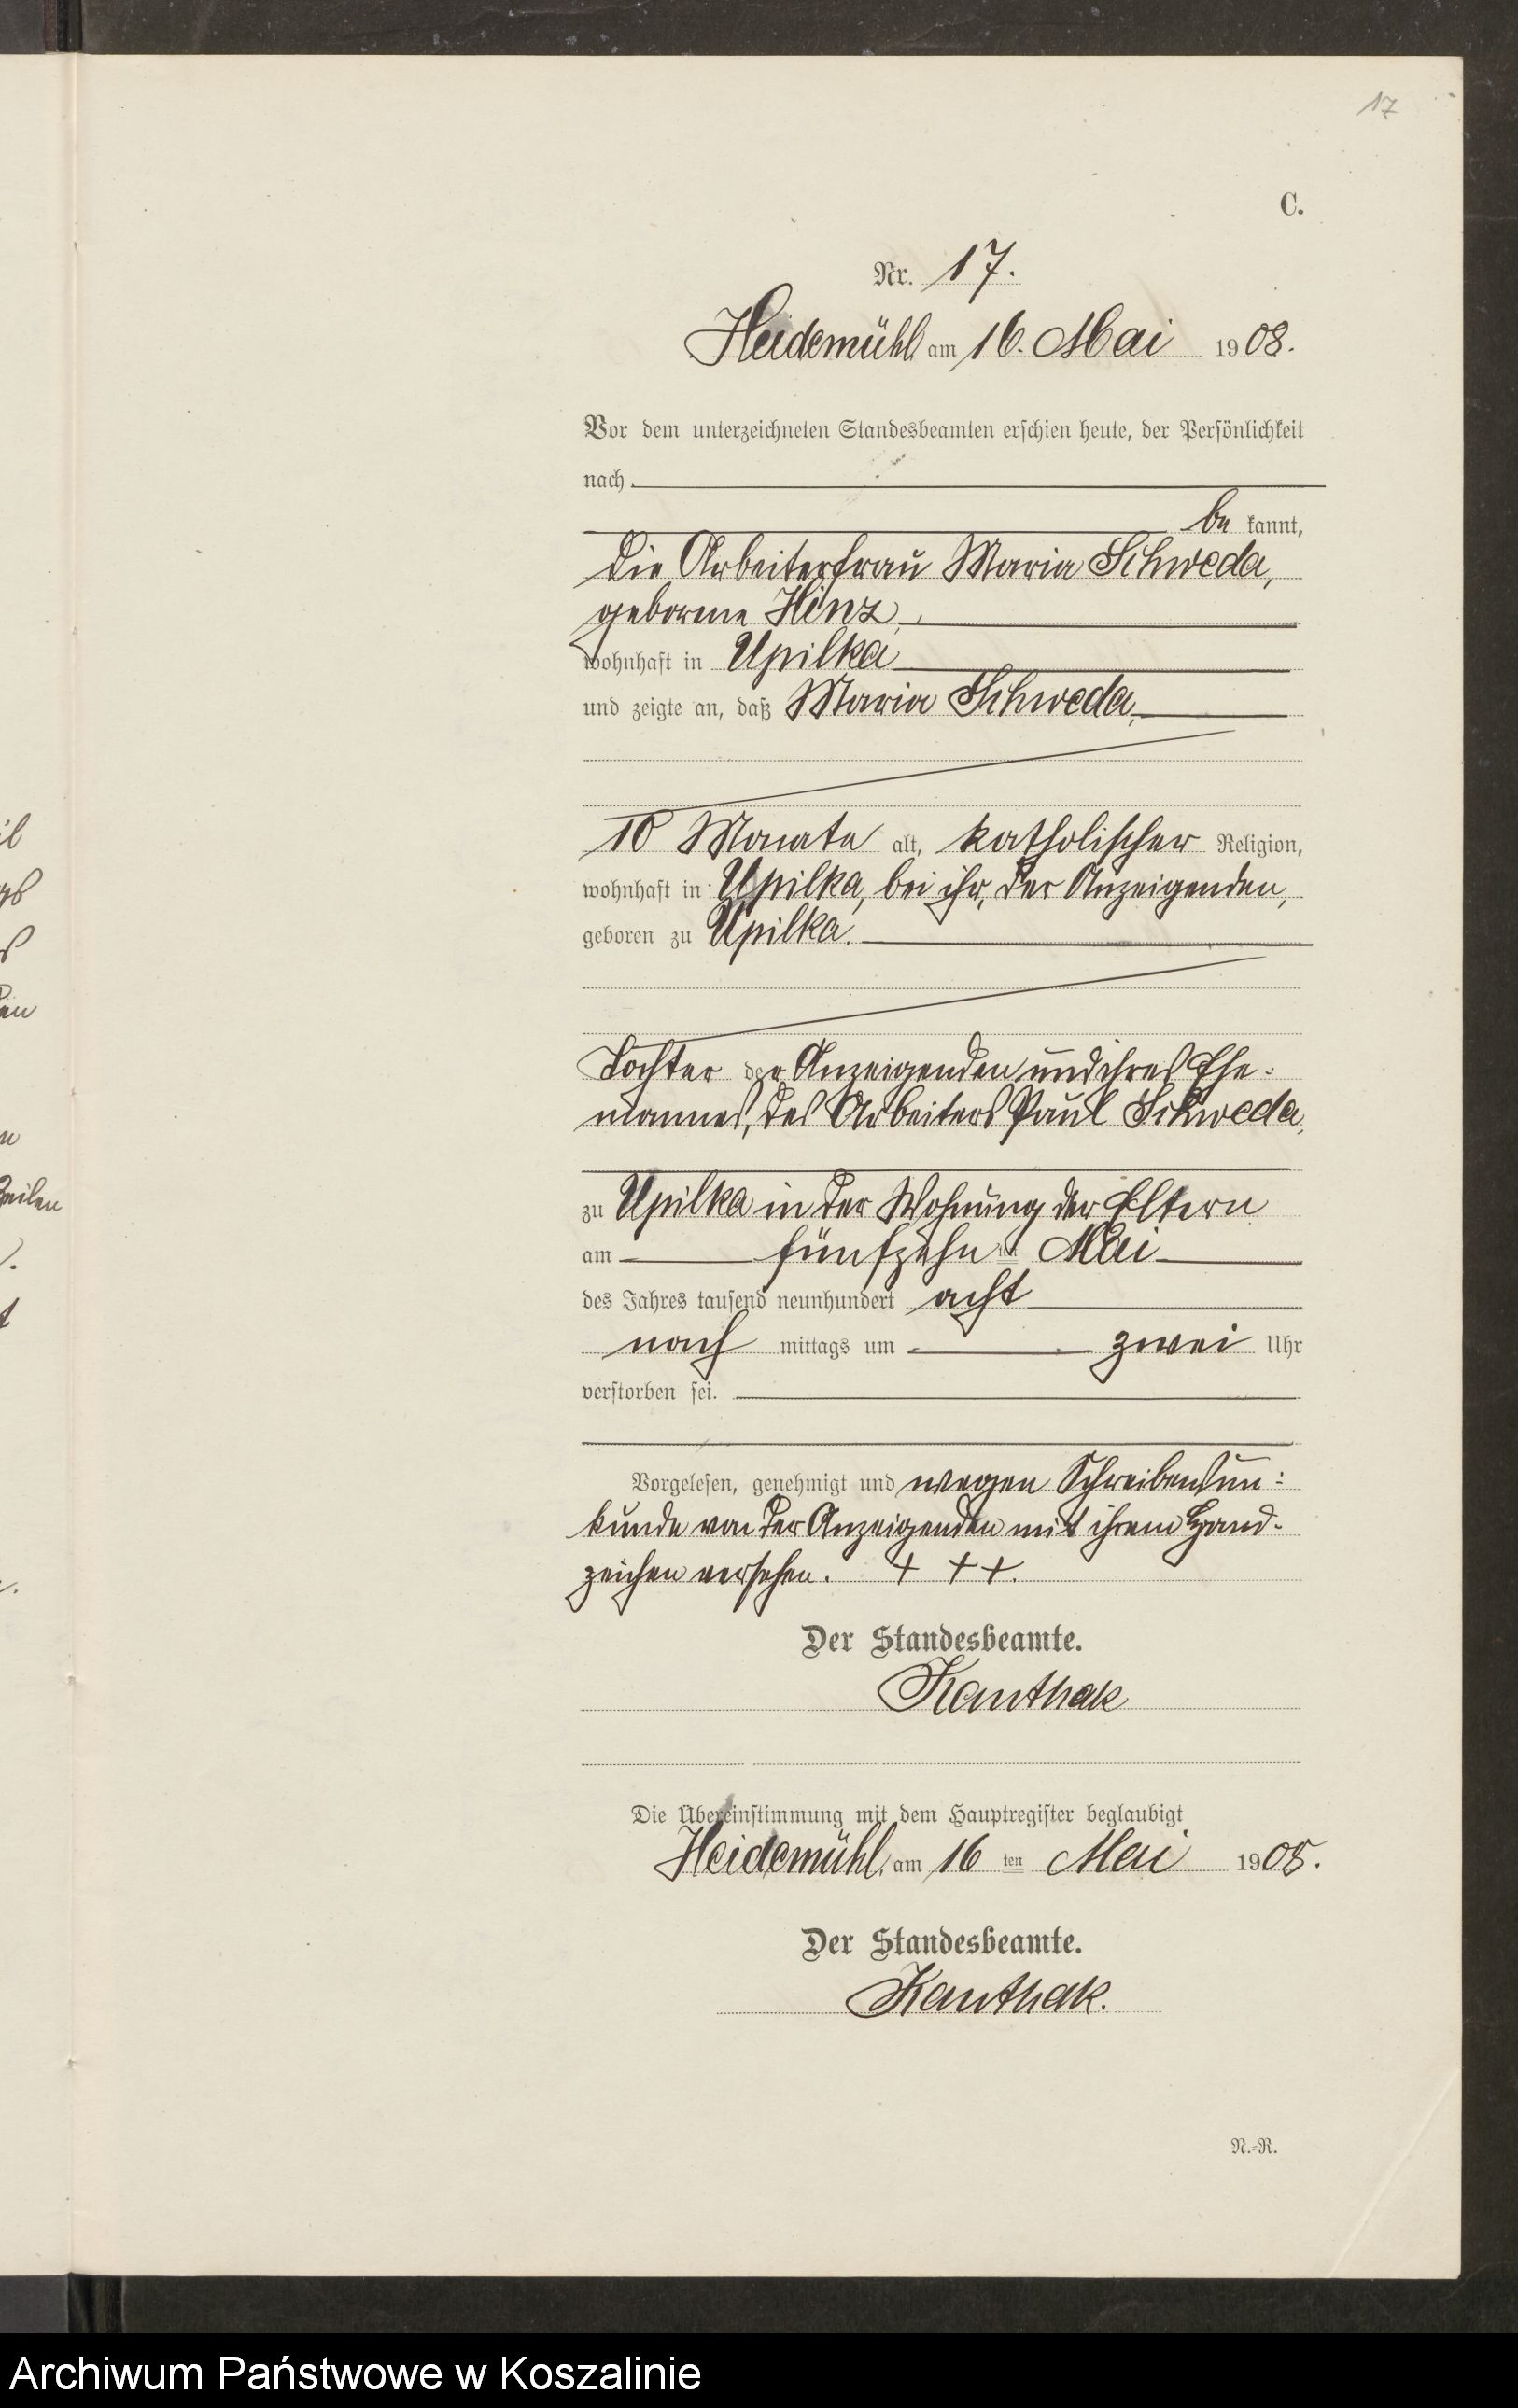 17
C.
Nr. 17.
Heidemühl am 16. Mai 1908.
Vor dem unterzeichneten Standesbeamten erschien heute, der Persönlichkeit
nach
be kannt,
die Arbeiterfrau Maria Schweda,
geborene Hinz,
wohnhaft in Upilka
und zeigte an, daß Maria Schweda,
10 Monate alt, katholischer Religion,
wohnhaft in Upilka, bei ihr, der Anzeigenden,
geboren zu Upilka.
Tochter der Anzeigenden und ihres Ehe-
mannes, des Arbeiters Paul Schweda,
zu Upilka in der Wohnung der Eltern
am fünfzehn ten Mai
des Jahres tausend neunhundert acht
nach mittags um zwei Uhr
verstorben sei.
Vorgelesen, genehmigt und wegen Schreibensun-
kunde von der Anzeigenden mit ihrem Hand-
zeichen versehen. + + +.
Der Standesbeamte.
Kanthak
Die Übereinstimmung mit dem Hauptregister beglaubigt
Heidemühl, am 16 ten Mai 1908.
Der Standesbeamte.
Kanthak.
N.-R.
Archiwum Państwowe w Koszalinie